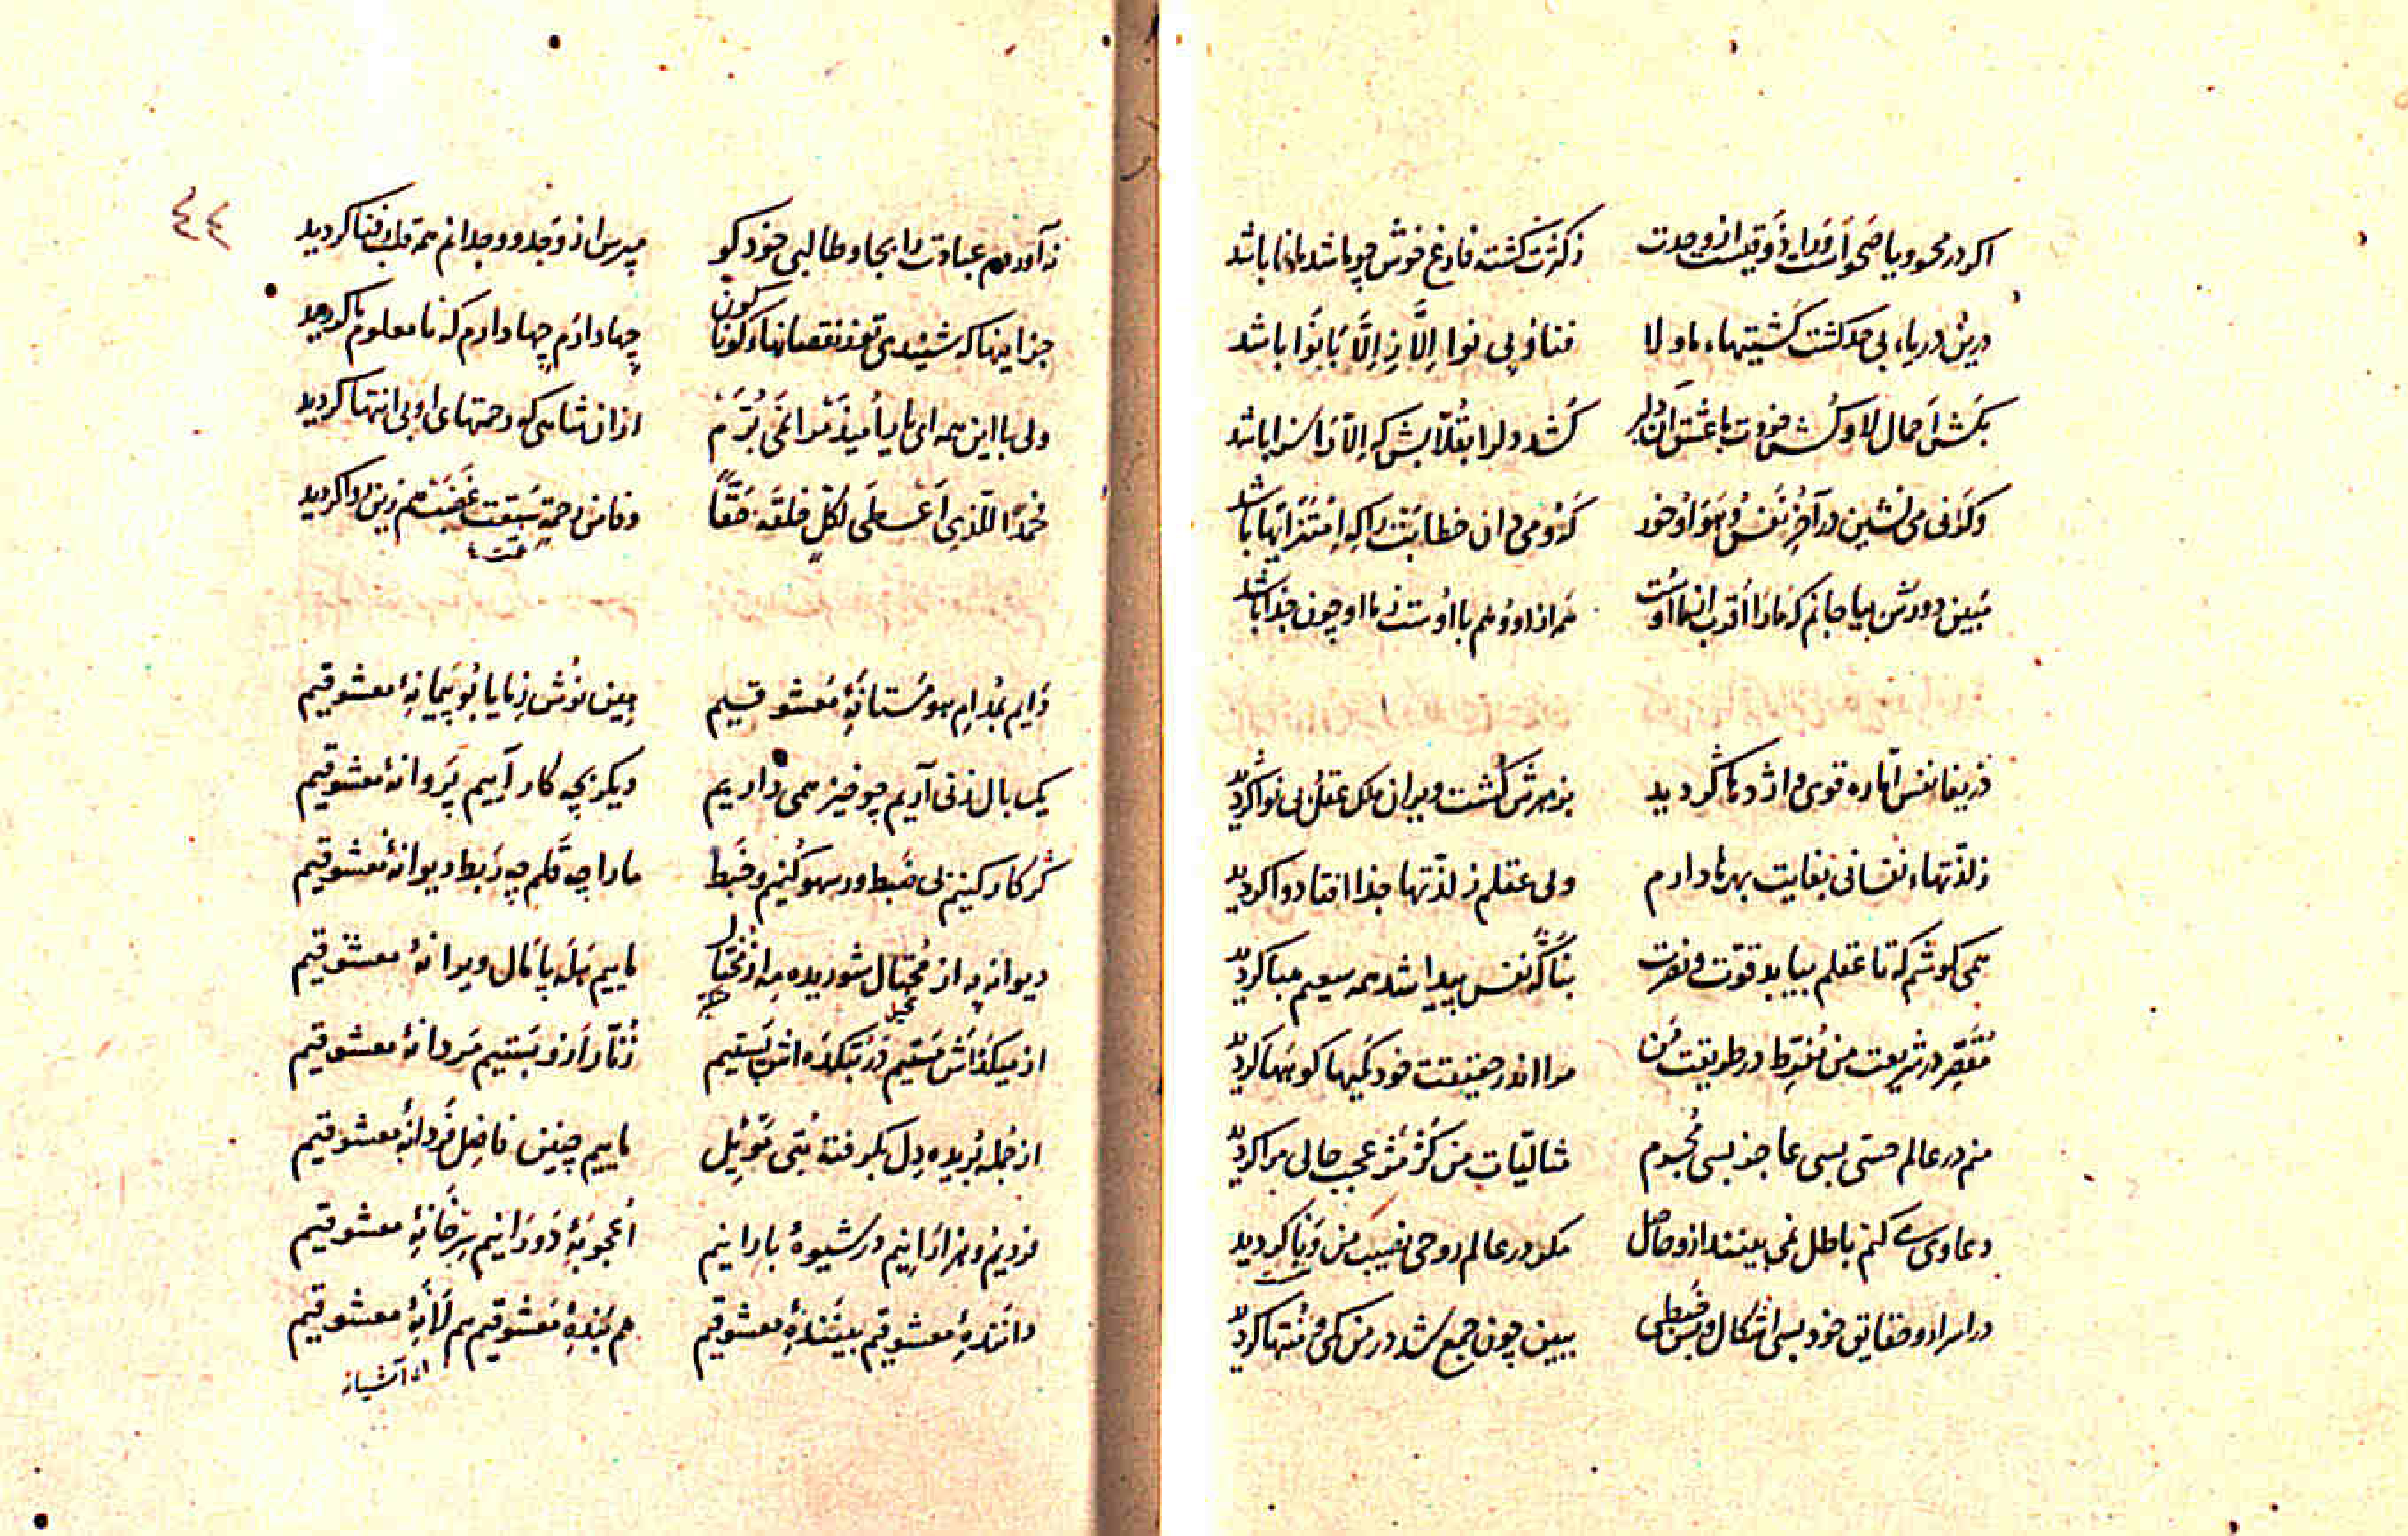 اکر در محو و یا صحو است ورا ذوقیست از وحدت
ز کثرت کشته فارغ خوش چو باشد باشد
درین دریاء بی حد کشت کشتیهاء ما و لا
فناؤ بی نوا اِلَّا زِ اِلَّا بَا نَوا باشد
بکش احمال لا و کش خودت با عشق آن دلبر
کشد دلرا بقلابش که اِلّا را سزا باشد
وکرنی می نشین در آخر نفس و هوا و خور
که و می دان خطابت را که باشد
مبین دورش بیا جانم که ما را اقرب از ما اوست
هم از او و هم با اوست ز ما او چون جدا باشد
دریغا نفس اماره قوی و اژدها کردید
بزهرش کشت ویران ملک عقلم بی نوا کردید
ز لذتهاء نفسانی بغایت بهرها دارم
ولی عقلم ز لذتها جدا افتاد وا کردید
همی کوشم که تا عقلم بیابد قوت و نصرت
بناکه نفس پیدا شد همه سعیم هبا کردید
مقصر در شریعت من مفرط در طریقت من
مرا اندر حقیقت خود کیها کو کردید
منم در عالم حسی بسی عاجز بسی مجرم
مثالیات من کژ مژ عجب حالی مرا کردید
دعاوی کنم باطل نمی بینند ازو حاصل
مکر در عالم روحی نصیب من کردید
در اسرار و حقایق خود بسی اشکال و بس خبطی
ببین چون جمع شد در من کمی و منتها کردید
٤٤
نه آوردم عبادت را بجا و طالبی خود کو
مپرس از وجد و وجدانم همه قلب فنا کردید
جز اینها که شنیدی تو ز نقصانهاء کوناکون
چها دارم چها دارم که نا معلوم ما کردید
ولی با این همه ای یار امیدم را نمی برم
از ان شاهی که رحمتهای او بی انتها کردید
حمدًا للّذی اَعْطَی لکلٍ خلقَه حَقًّا
وفا من رحمةٍ سبقت غضبتهم زین کردید
دایم بمدام هو مستانهٔ معشوقیم
می نوش زِ ما یا بو پیمانهٔ معشوقیم
یک بال زنی آریم چو خیز همی داریم
دیکر بچه کار آییم پروانهٔ معشوقیم
کر کار کنیم بی ضبط ور سهو کنیم و خبط
ما را چه قلم چه ربط دیوانهٔ معشوقیم
دیوانه به از محتال شوریده به از مختال
ماییم هله پامال ویرانهٔ معشوقیم
از میکده اش مستیم در بتکده اش پستیم
زنار ازو بستیم مردانهٔ معشوقیم
از جمله بریده دل بکرفته بتی موئل
ماییم چنین فاضل فردانهٔ معشوقیم
فردیم و هزارانیم در شیوهٔ بارانیم
اعجوبهٔ دورانیم سرخانهٔ معشوقیم
دانندهٔ معشوقیم بینندهٔ معشوقیم
هم بندهٔ معشوقیم هم لانهٔ معشوقیم
ای آشیانه